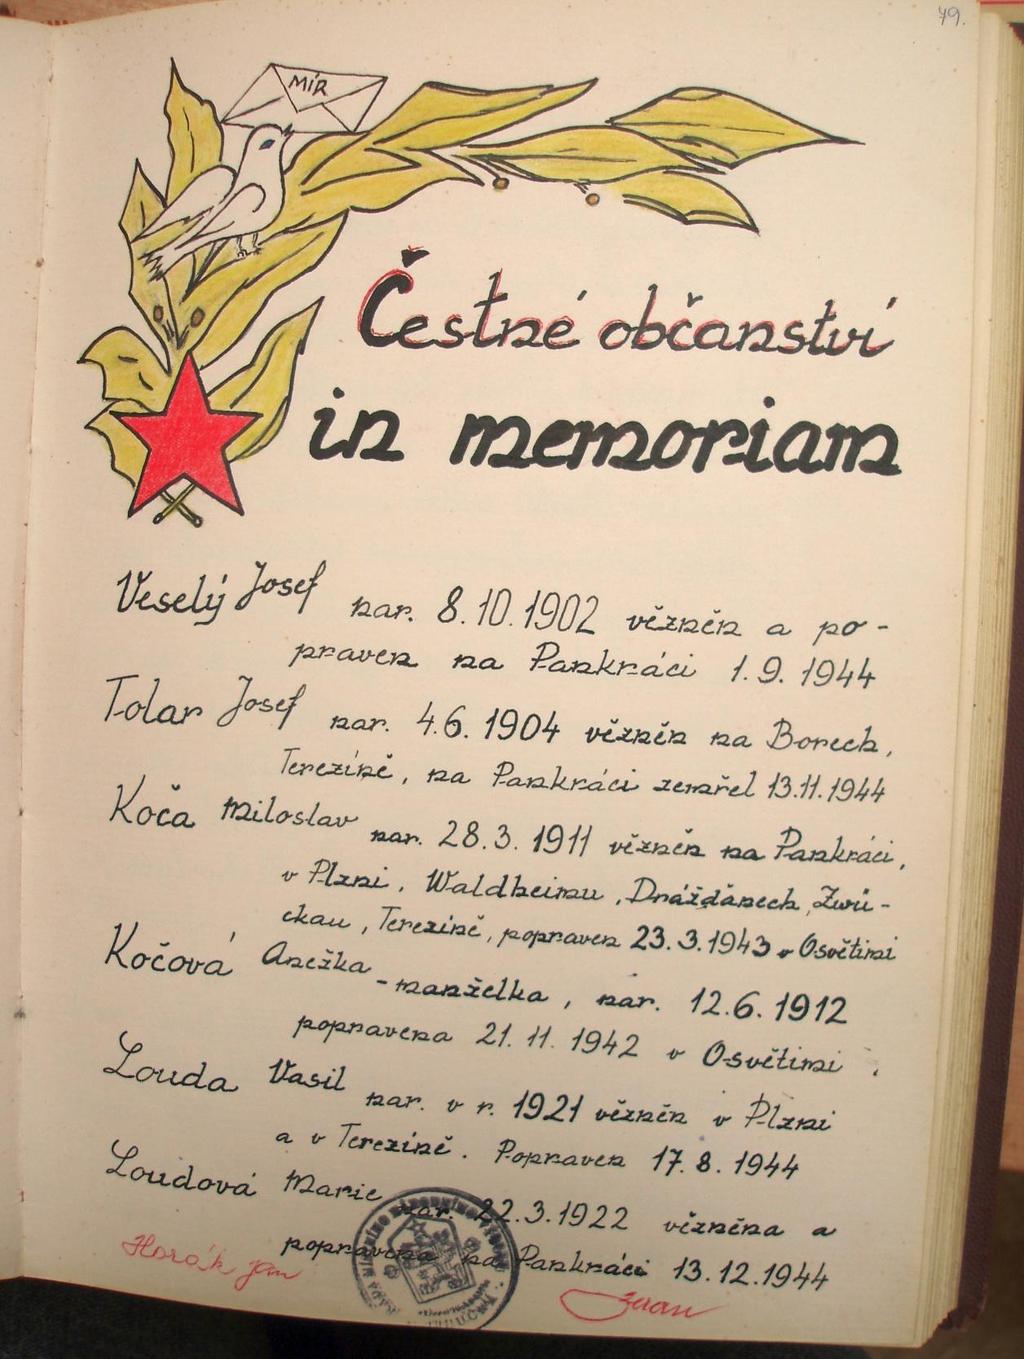 79.
MÍR
Čestné občanství
in memoriam
Veselý Josef nar. 8.10.1902 vězněn a po-
praven na Pankráci 1.9.1944
Tolar Josef nar. 4.6.1904 vězněn na Borech,
Terezíně, na Pankráci zemřel 13.11.1944
Koča Miloslav nar. 28.3.1911 vězněn na Pankráci,
v Plzni, Waldheimu, Drážďanech, Zwü-
ckau, Terezíně, popraven 23.3.1943 v Osvětimi
Kočová Anežka - manželka, nar. 12.6.1912
popravena 21.11.1942 v Osvětimi.
Louda Vasil nar. v r. 1921 vězněn v Plzni
a v Terezíně. Popraven 17.8.1944
Loudová Marie nar. 22.3.1922 vězněna a
popravena na Pankráci 13.12.1944
Horák Jan